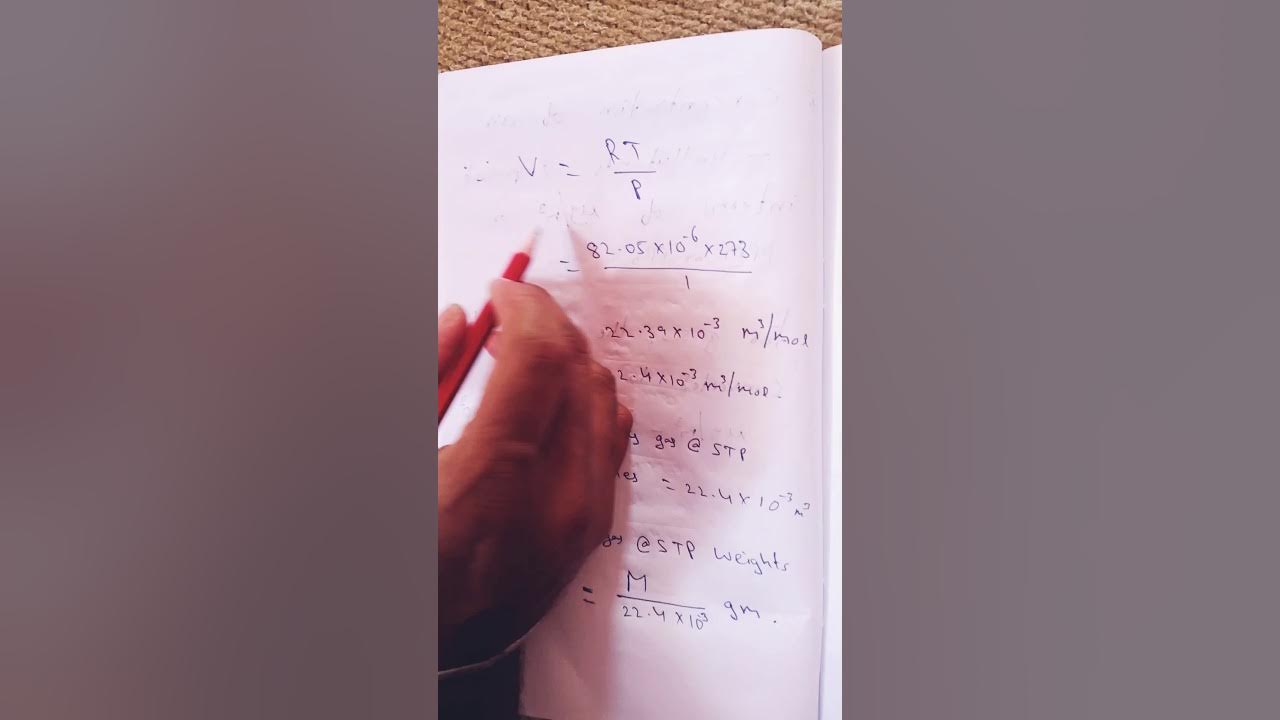 ∴ V = RT / P
= 82.05 × 10⁻⁶ × 273 / 1
22.39 × 10⁻³ m³/mol
2.4 × 10⁻³ m³/mol.
gas @ STP
= 22.4 × 10⁻³ m³
@ STP weights
= M / 22.4 × 10³ gm.